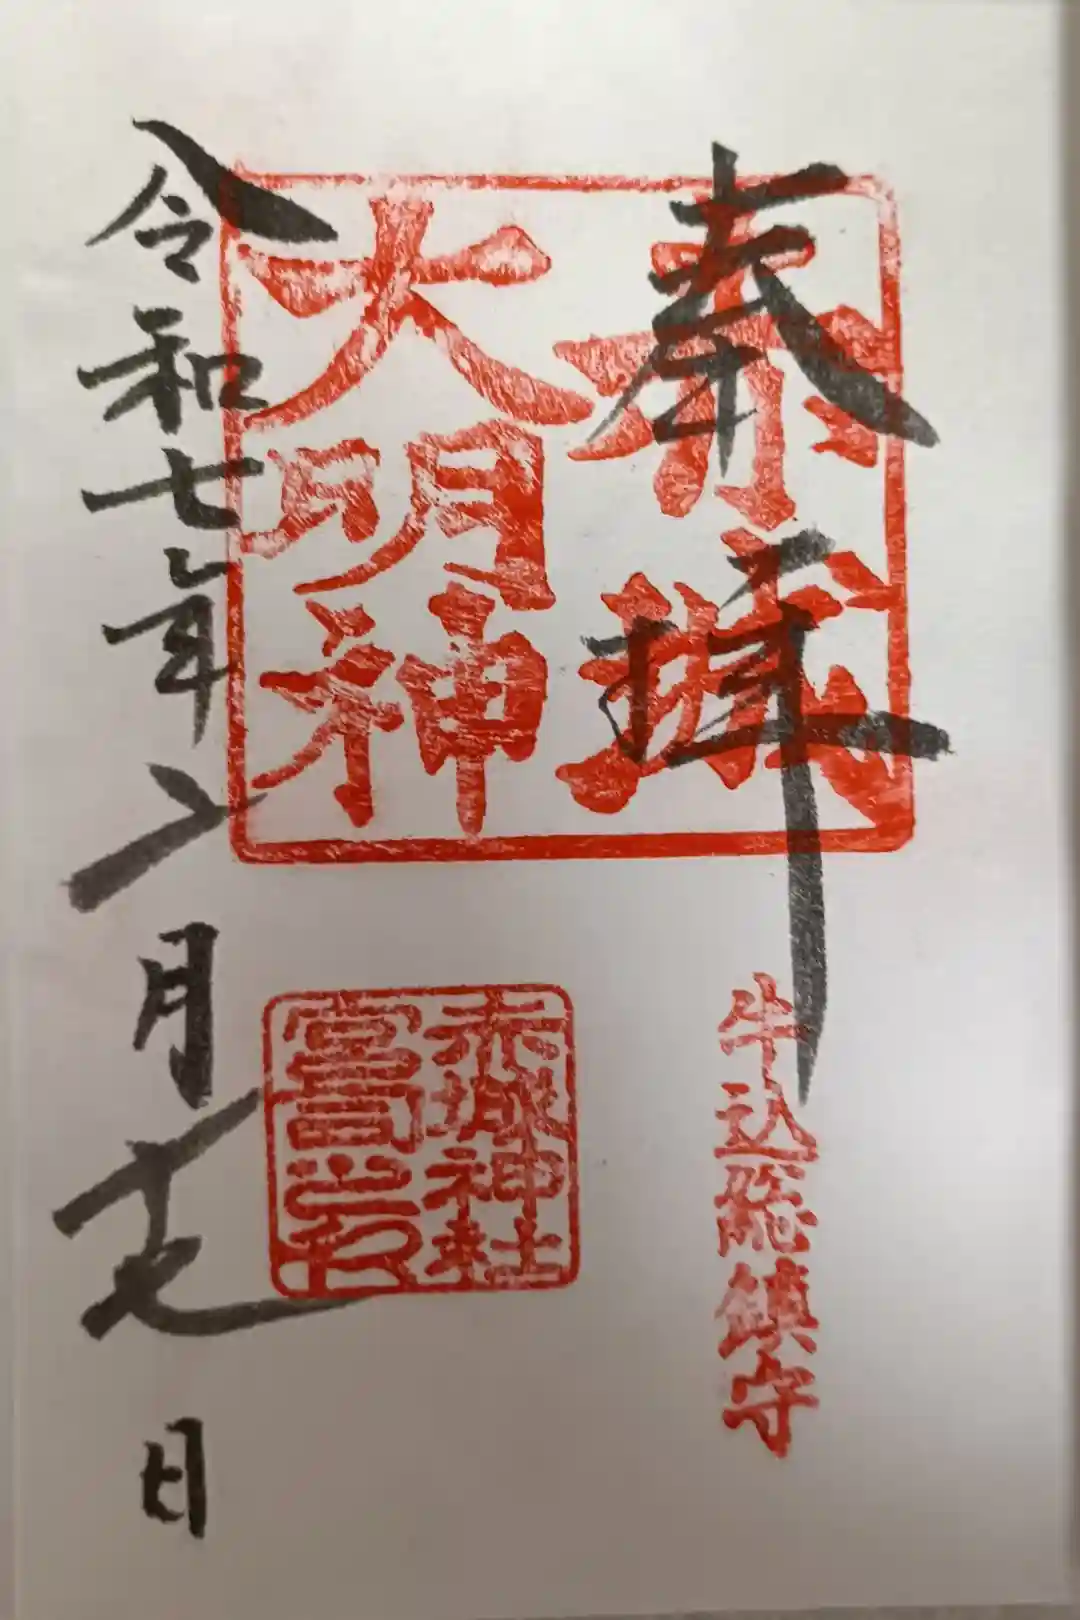 奉拝
赤城
大明神
牛込総鎮守
赤城神社
宮司之印
令和七年 月十七日